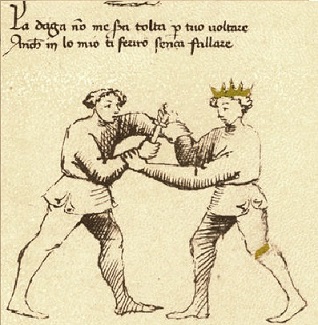 La daga nō me sera tolta p tuo voltare
Anchi in lo mio ti feriro sença fallare